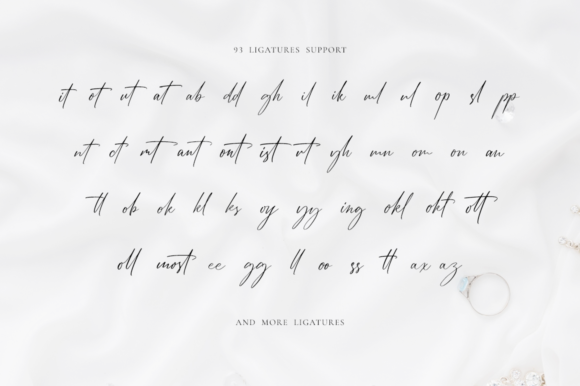 93 LIGATURES SUPPORT
it ot ut at ab dd gh il ik ml nl op sl pp
nt ct mt ant ont ist rt yh mn om on an
tl ob ok kl ks oy yy ing okl okt ott
oll most ee gg ll oo ss tt ax az
AND MORE LIGATURES